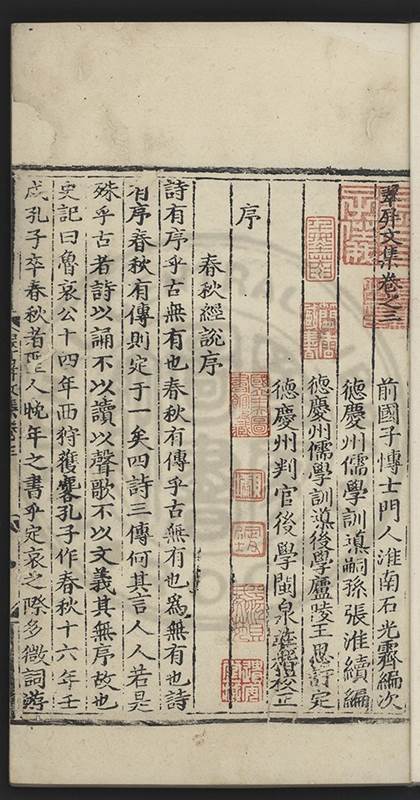 翠屏文集卷之三
前國子博士門人淮南石光霽編次
德慶州儒學訓導嗣孫張淮續編
德慶州儒學訓導後學廬陵王思訂定
德慶州判官後學閩泉莊楷校正
序
春秋經說序
詩有序乎古無有也春秋有傳乎古無有也爲無有也詩
有序春秋有傳則定于一矣四詩三傳何其言人人若是
殊乎古者詩以誦不以讀以聲歌不以文義其無序故也
史記曰魯哀公十四年西狩獲麐孔子作春秋十六年壬
戌孔子卒春秋者聖人晚年之書乎定哀之際多微詞游